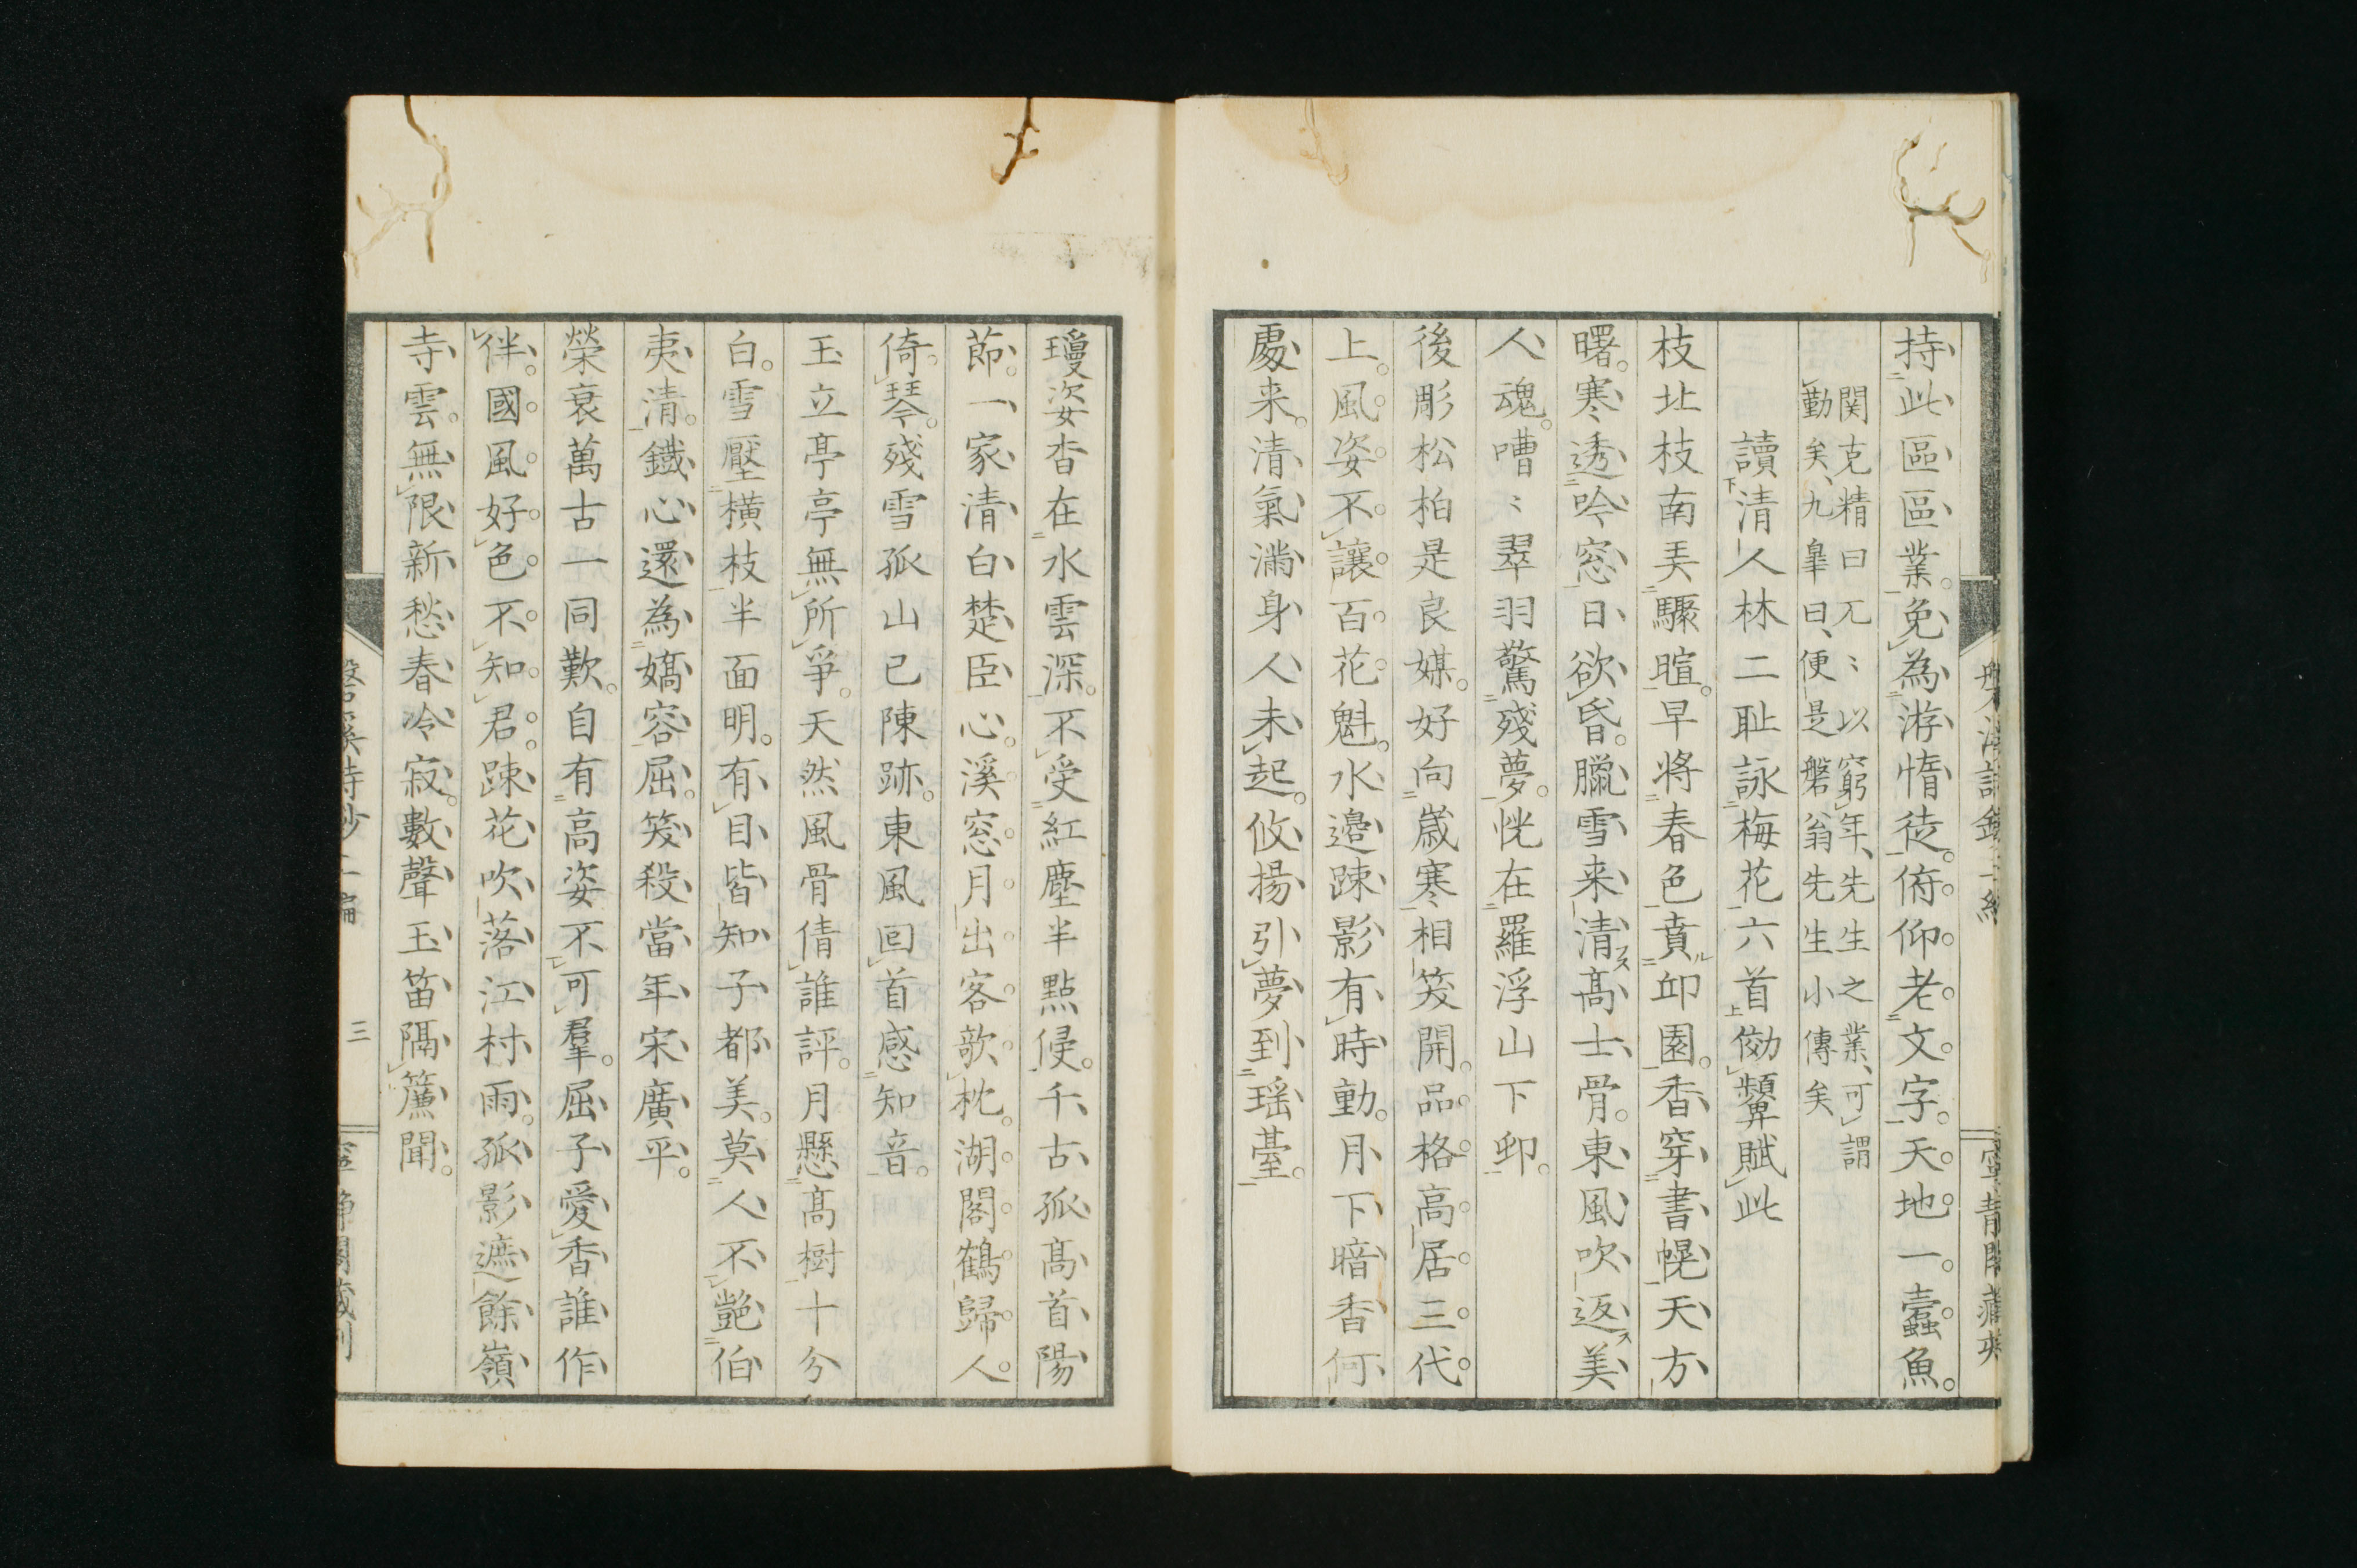 持此區區業免為游惰徒俯仰老文字天地一蠹魚
関克精曰兀〻以窮年先生之業可謂
勤矣九皐曰便是磐翁先生小傳矣
讀清人林二耻詠梅花六首傚顰賦此
枝北枝南弄驟暄早將春色賁邱園香穿書幌天方
曙寒透吟窓日欲昏臘雪来清高士骨東風吹返美
人魂嘈〻翠羽驚殘夢恍在羅浮山下邨
後彫松柏是良媒好向歲寒相笑開品格高居三代
上風姿不讓百花魁水邉踈影有時動月下暗香何
處来清氣滿身人未起攸揚引夢到瑶臺
瓊姿杳在水雲深不受紅塵半點侵千古孤高首陽
莭一家清白楚臣心溪窓月出客欹枕湖閣鶴歸人
倚琴殘雪孤山已陳跡東風回首感知音
玉立亭亭無所爭天然風骨倩誰評月懸高樹十分
白雪壓橫枝半面明有目皆知子都美莫人不艷伯
夷清鐵心還為嬌容屈笑殺當年宋廣平
榮衰萬古一同歎自有高姿不可羣屈子愛香誰作
伴國風好色不知君踈花吹落江村雨孤影遮餘嶺
寺雲無限新愁春冷寂數聲玉笛隔簾聞
三